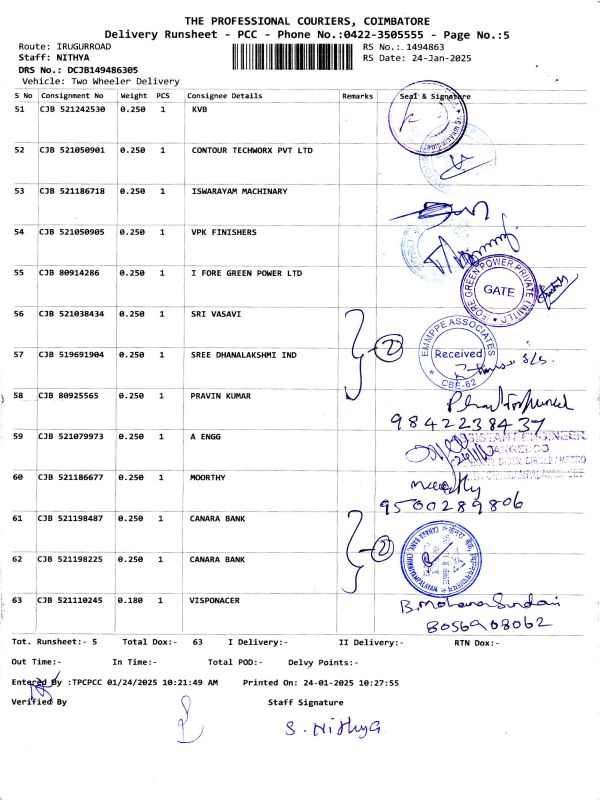 THE PROFESSIONAL COURIERS, COIMBATORE
Delivery Runsheet - PCC - Phone No.:0422-3505555 - Page No.:5
Route: IRUGURROAD RS No.:. 1494863
Staff: NITHYA RS Date: 24-Jan-2025
DRS No.: DCJB149486305
Vehicle: Two Wheeler Delivery
S No Consignment No Weight PCS Consignee Details Remarks Seal & Signature
51 CJB 521242530 0.250 1 KVB
52 CJB 521050901 0.250 1 CONTOUR TECHWORX PVT LTD
53 CJB 521186718 0.250 1 ISWARAYAM MACHINARY
54 CJB 521050905 0.250 1 VPK FINISHERS
55 CJB 80914286 0.250 1 I FORE GREEN POWER LTD
FORE GREEN POWER PRIVATE LIMITED
GATE
56 CJB 521038434 0.250 1 SRI VASAVI
2
EMMPPE ASSOCIATES
Received
CBE-62
57 CJB 519691904 0.250 1 SREE DHANALAKSHMI IND
58 CJB 80925565 0.250 1 PRAVIN KUMAR
9842238437
59 CJB 521079973 0.250 1 A ENGG
60 CJB 521186677 0.250 1 MOORTHY
Moorthy
9500289806
61 CJB 521198487 0.250 1 CANARA BANK
2
62 CJB 521198225 0.250 1 CANARA BANK
63 CJB 521110245 0.180 1 VISPONACER
B. Mohana Sundari
8056908062
Tot. Runsheet:- 5 Total Dox:- 63 I Delivery:- II Delivery:- RTN Dox:-
Out Time:- In Time:- Total POD:- Delvy Points:-
Entered By :TPCPCC 01/24/2025 10:21:49 AM Printed On: 24-01-2025 10:27:55
Verified By Staff Signature
S. Nithya